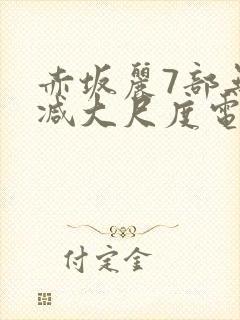 赤坂麗7部
减大尺度電
付定金